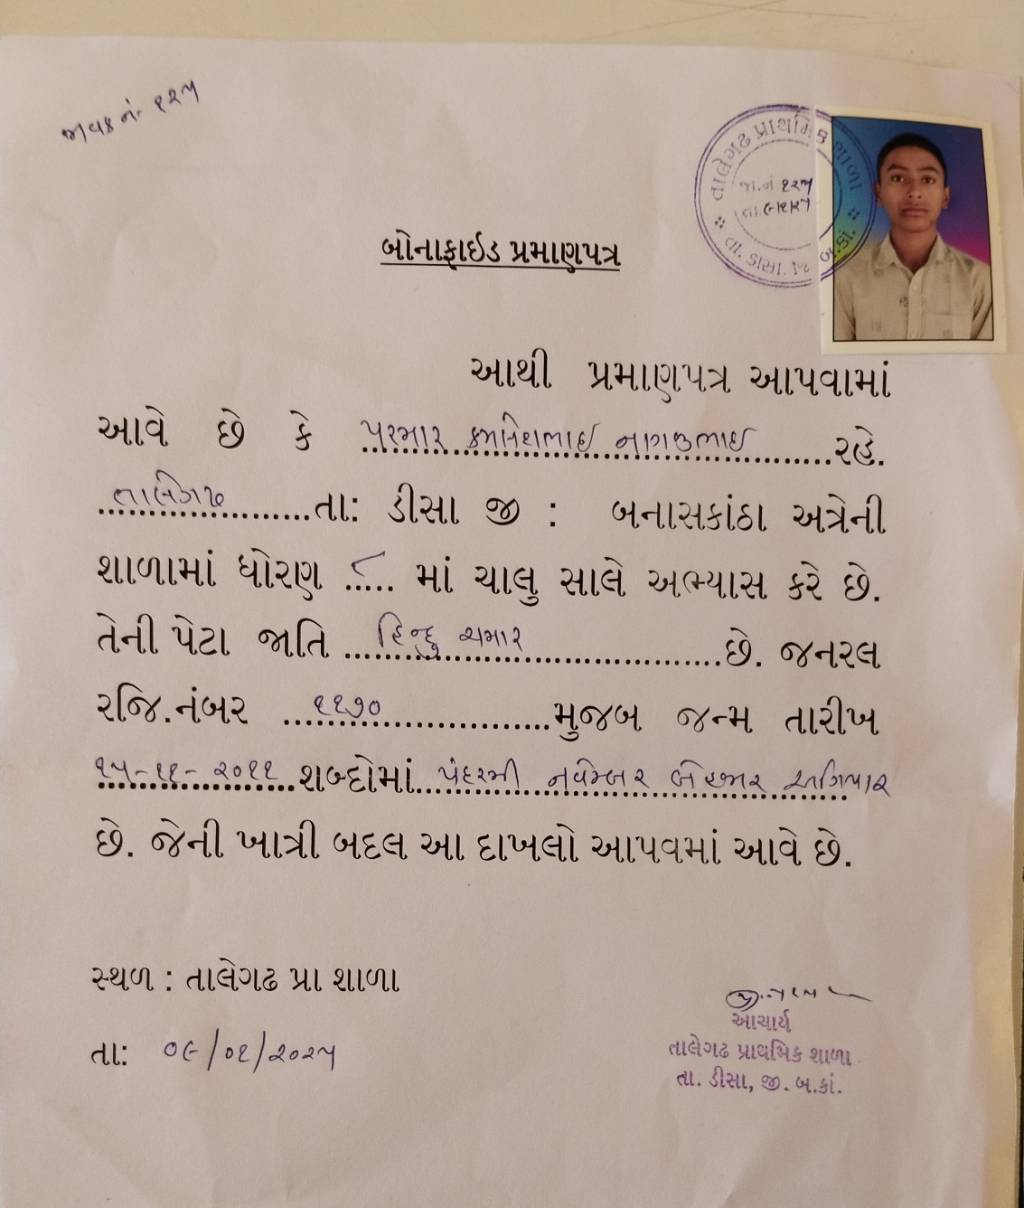 જાવક નં- ૧૨૫
તાલેગઢ પ્રાથમિક શાળા
જા.નં ૧૨૫
તા. ડીસા. જિ. બ.કાં.
બોનાફાઈડ પ્રમાણપત્ર
આથી પ્રમાણપત્ર આપવામાં
આવે છે કે પરમાર કમલેશભાઈ નાગજીભાઈ રહે.
તાલેગઢ તા: ડીસા જી : બનાસકાંઠા અત્રેની
શાળામાં ધોરણ ૮ માં ચાલુ સાલે અભ્યાસ કરે છે.
તેની પેટા જાતિ હિન્દુ ચમાર છે. જનરલ
રજિ.નંબર ૧૧૭૦ મુજબ જન્મ તારીખ
૧૫-૧૧-૨૦૧૧ શબ્દોમાં પંદરમી નવેમ્બર બેહજાર અગિયાર
છે. જેની ખાત્રી બદલ આ દાખલો આપવમાં આવે છે.
સ્થળ : તાલેગઢ પ્રા શાળા
તા: ૦૯/૦૧/૨૦૨૫
આચાર્ય
તાલેગઢ પ્રાથમિક શાળા
તા. ડીસા, જી. બ.કાં.